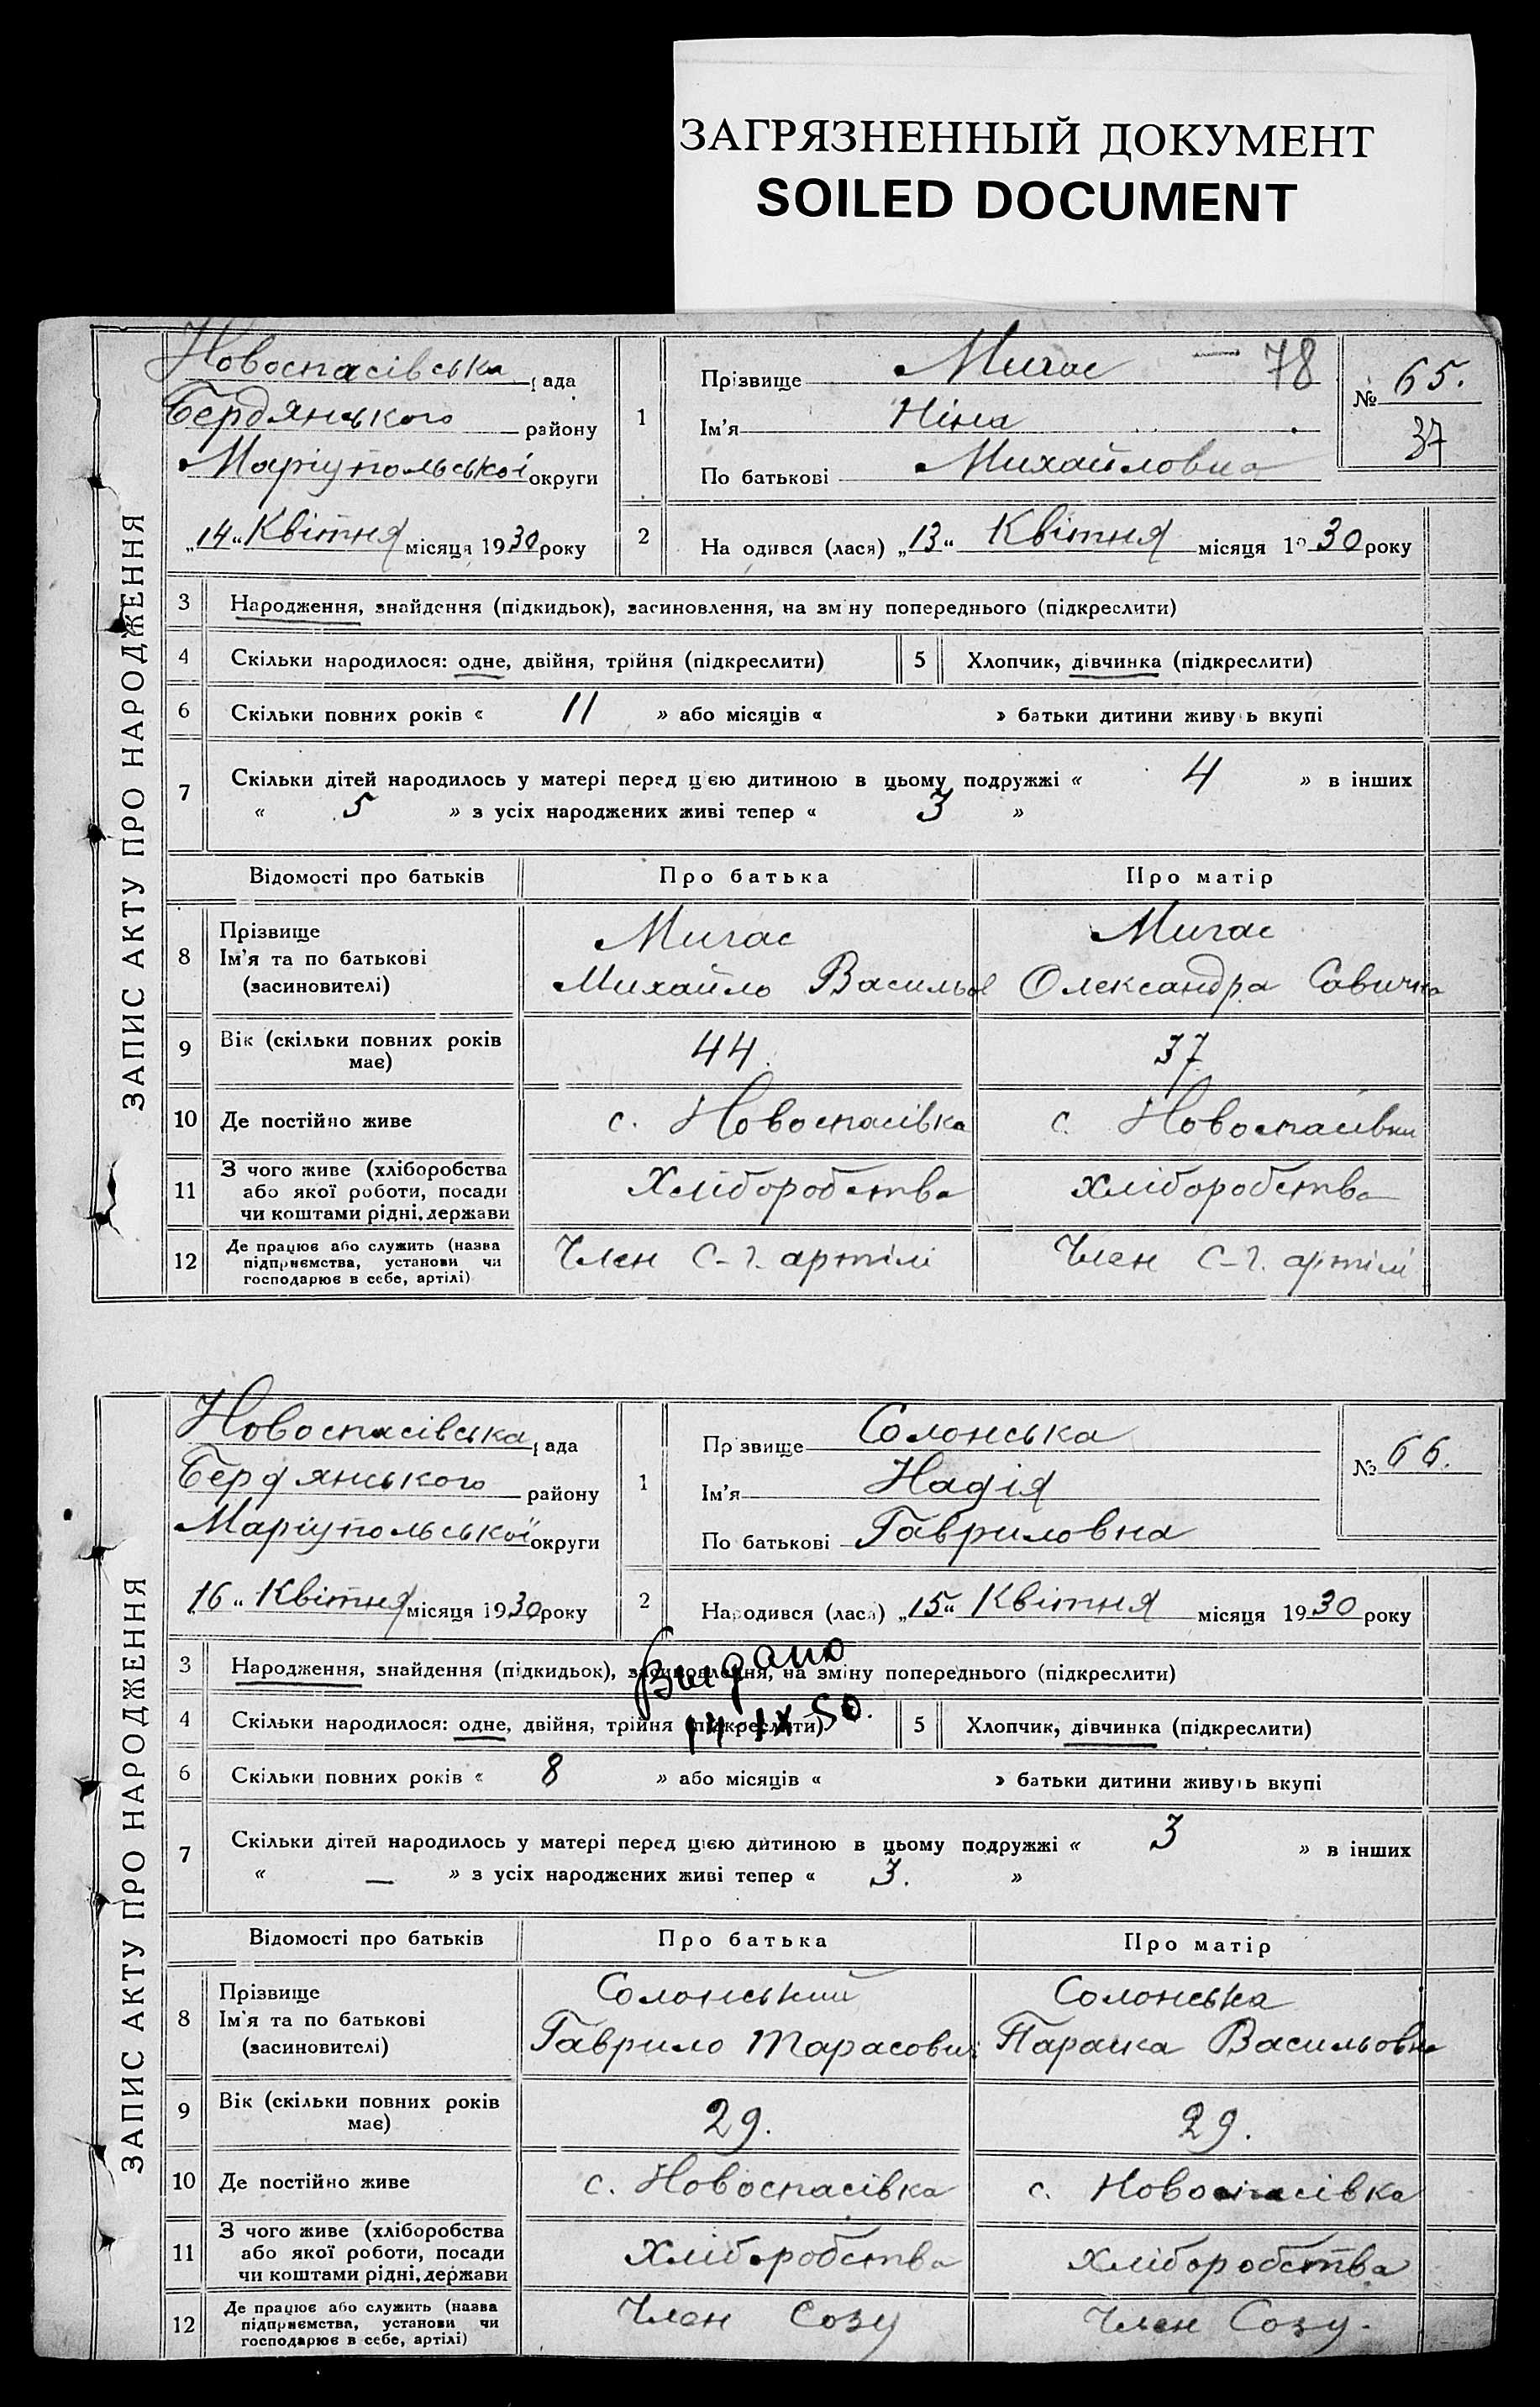 ЗАГРЯЗНЕННЫЙ ДОКУМЕНТ
SOILED DOCUMENT
ЗАПИС АКТУ ПРО НАРОДЖЕННЯ
Новоспасівська рада
Бердянського району
Маріупольської округи
„14“ Квітня місяця 1930 року
1
Прізвище Мигас — 78
Ім'я Ніна
По батькові Михайловна
№ 65.
37
2
На одився (лася) „13“ Квітня місяця 1930 року
3 Народження, знайдення (підкидьок), засиновлення, на зміну попереднього (підкреслити)
4 Скільки народилося: одне, двійня, трійня (підкреслити) 5 Хлопчик, дівчинка (підкреслити)
6 Скільки повних років « 11 » або місяців « » батьки дитини живуть вкупі
7 Скільки дітей народилось у матері перед цією дитиною в цьому подружжі « 4 » в інших
« 5 » з усіх народжених живі тепер « 3 »
Відомості про батьків Про батька Про матір
8 Прізвище Мигас Мигас
Ім'я та по батькові Михайло Васильов Олександра Савична
(засиновителі)
9 Вік (скільки повних років має) 44. 37
10 Де постійно живе с. Новоспасівка с. Новоспасівка
11 З чого живе (хліборобства Хліборобства Хліборобства
або якої роботи, посади
чи коштами рідні, держави
12 Де працює або служить (назва Член с-г. артілі Член с-г. артілі
підприємства, установи чи
господарює в себе, артілі)
ЗАПИС АКТУ ПРО НАРОДЖЕННЯ
Новоспасівська рада
Бердянського району
Маріупольської округи
16“ Квітня місяця 1930 року
1
Прізвище Солонська
Ім'я Надія
По батькові Гавриловна
№ 66.
2
Народився (лася) „15“ Квітня місяця 1930 року
3 Народження, знайдення (підкидьок), засиновлення, на зміну попереднього (підкреслити)
Видано
14 IX 50.
4 Скільки народилося: одне, двійня, трійня (підкреслити) 5 Хлопчик, дівчинка (підкреслити)
6 Скільки повних років « 8 » або місяців « » батьки дитини живуть вкупі
7 Скільки дітей народилось у матері перед цією дитиною в цьому подружжі « 3 » в інших
« — » з усіх народжених живі тепер « 3. »
Відомості про батьків Про батька Про матір
8 Прізвище Солонський Солонська
Ім'я та по батькові Гаврило Тарасович Параска Васильовна
(засиновителі)
9 Вік (скільки повних років має) 29. 29.
10 Де постійно живе с. Новоспасівка с. Новоспасівка
11 З чого живе (хліборобства Хліборобства Хліборобства
або якої роботи, посади
чи коштами рідні, держави
12 Де працює або служить (назва Член Созу Член Созу.
підприємства, установи чи
господарює в себе, артілі)